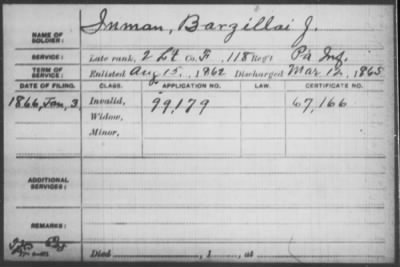 NAME OF SOLDIER: Inman, Barzillai J.
SERVICE: Late rank, 2 Lt Co. F, 118 Reg't Pa Inf.
TERM OF SERVICE: Enlisted Aug 15, 1862 Discharged Mar 12, 1865
DATE OF FILING. CLASS. APPLICATION NO. LAW. CERTIFICATE NO.
1866, Jan, 3 Invalid, 99,179 67,166
Widow,
Minor,
ADDITIONAL SERVICES:
REMARKS:
Died , 1 , at